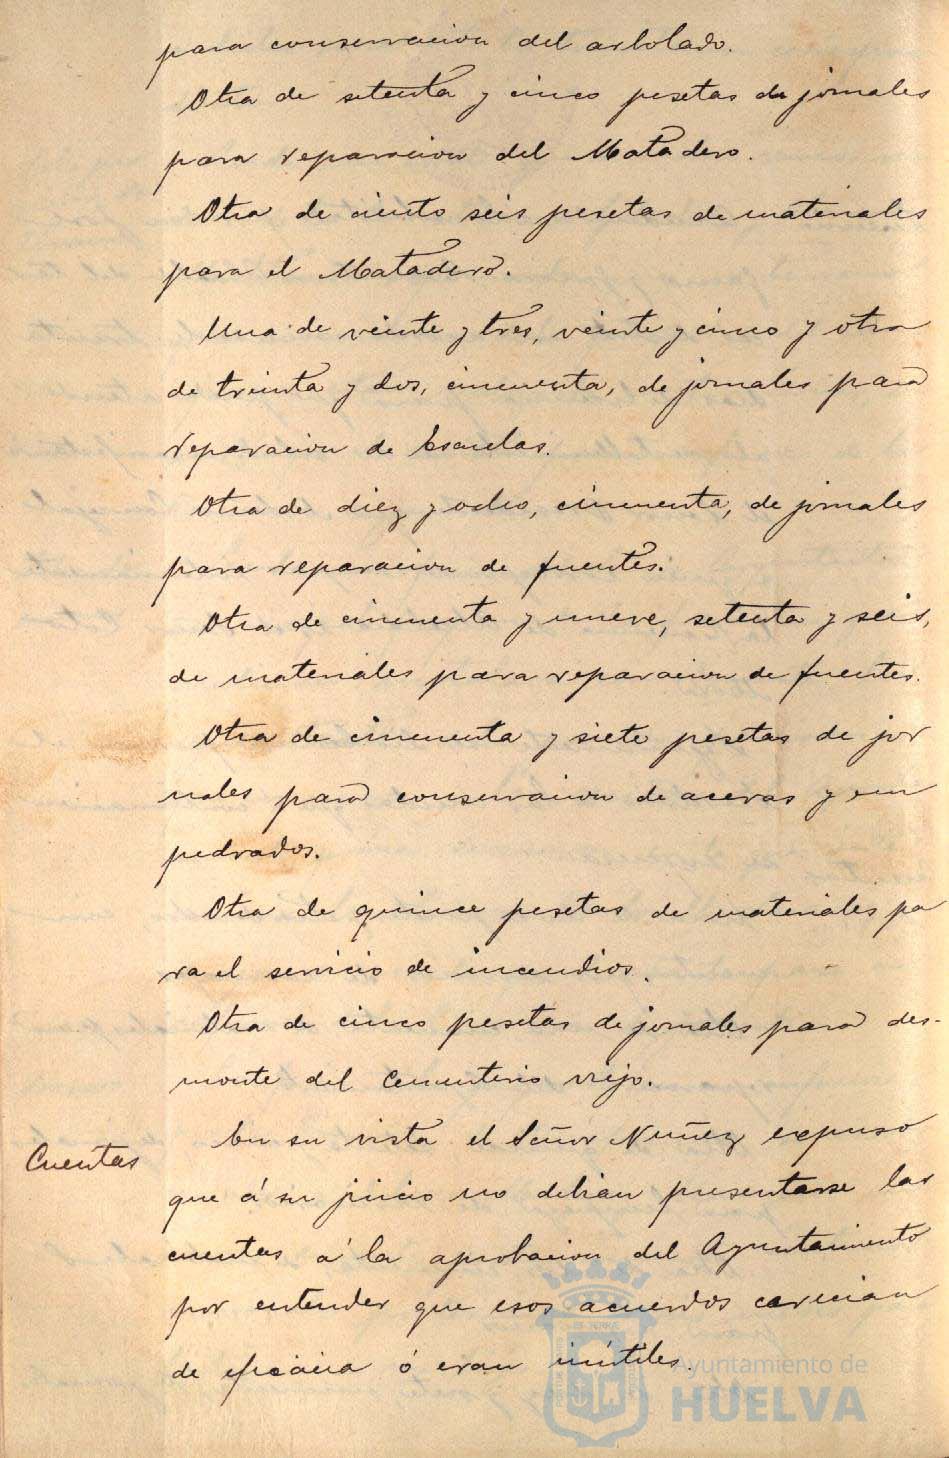 para conservacion del arbolado.
Otra de setenta y cinco pesetas de jornales
para reparacion del Matadero.
Otra de ciento seis pesetas de materiales
para el Matadero.
Una de veinte y tres, veinte y cinco y otra
de treinta y dos, cincuenta, de jornales para
reparacion de Escuelas.
Otra de diez y ocho, cincuenta, de jornales
para reparacion de fuentes.
Otra de cincuenta y nueve, setenta y seis,
de materiales para reparacion de fuentes.
Otra de cincuenta y siete pesetas de jor
nales para conservacion de aceras y em
pedrados.
Otra de quince pesetas de materiales pa
ra el servicio de incendios.
Otra de cinco pesetas de jornales para des-
monte del Cementerio viejo.
Cuentas
En su vista el Señor Nuñez expuso
que á su juicio no debian presentarse las
cuentas á la aprobacion del Ayuntamiento
por entender que esos acuerdos carecian
de eficacia ó eran inútiles.
Ayuntamiento de
HUELVA